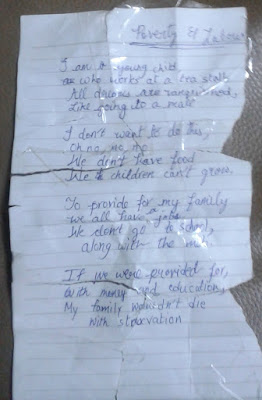 Poverty & Labour
I am a young child
who works at a tea stall
All dreams are
Like going to a mall
I don't want to do this,
Oh no, no, no
We don't have food
We children can't grow.
To provide for my family
we all have jobs
We don't go to school,
along with the
If we were provided for,
With money and education,
My family wouldn't die
With starvation